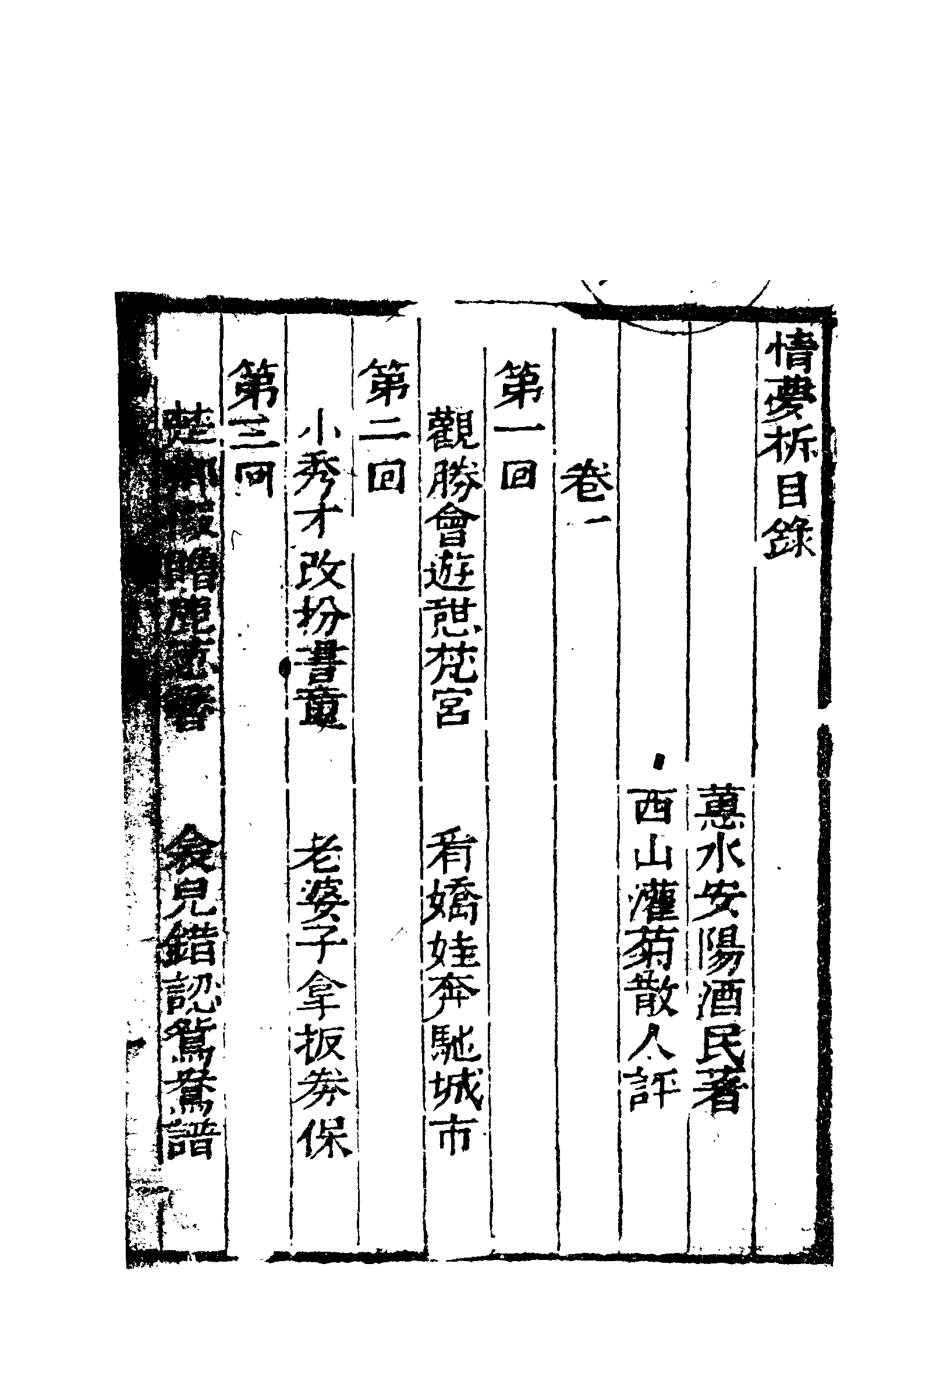 情夢柝目錄
蕙水安陽酒民著
西山灌菊散人評
卷一
第一回
觀勝會遊憇梵宮 看嬌娃奔馳城市
第二回
小秀才改扮書童 老婆子拿扳券保
第三回
楚卿假贈鹿葱簪 衾兒錯認鴛鴦譜